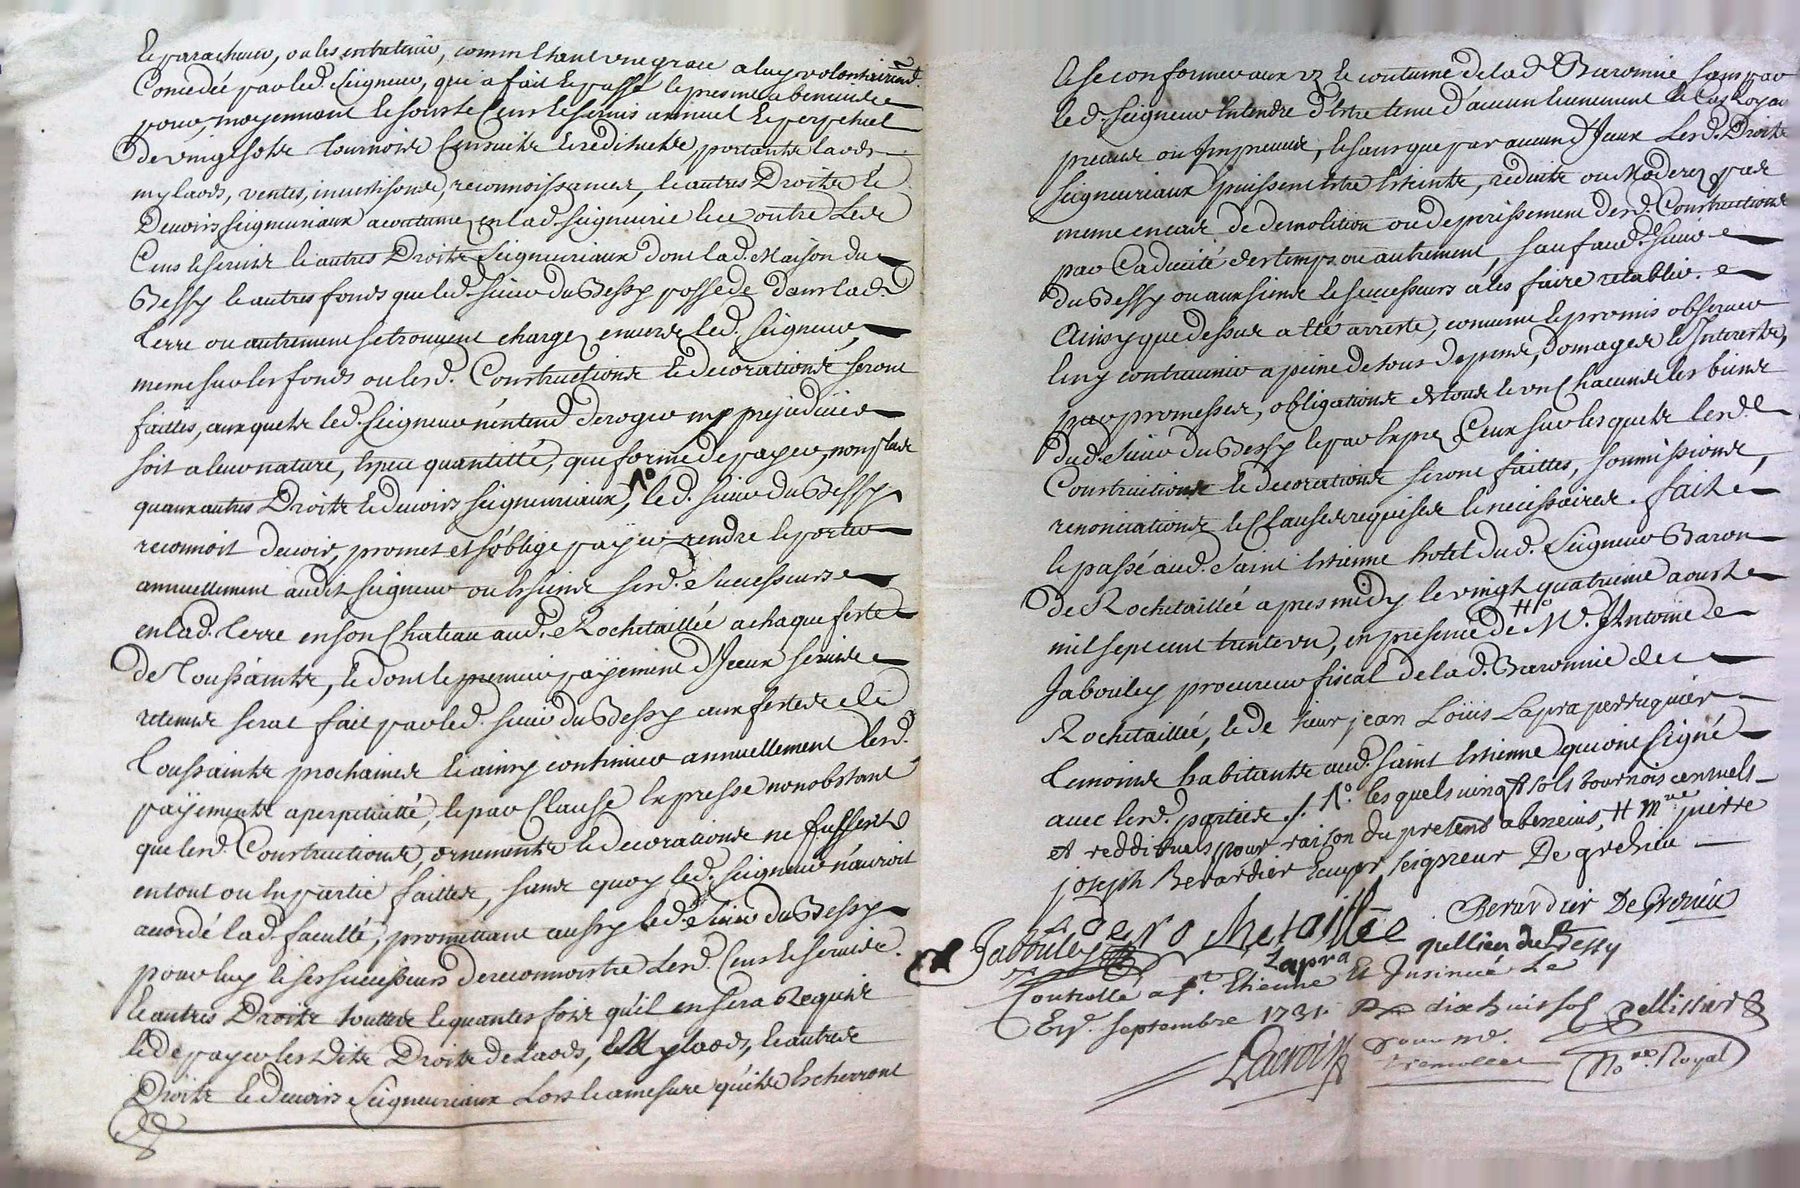 et parachever, ou les entretenir, comm' étant une grace a luy volontairemt.
Concedée par led. Seigneur, qui a fait et passé le present abeneuis
pour, moyennant le sous et Cens et servis annuel et perpetuel
de vingt sols tournois Censuits et reddituels portants laods
my laods, ventes, investisons, reconnoissances, et autres Droits et
Devoirs seigneuriaux acoutumes en lad. seigneurie et ce outre les
Cens et servis et autres Droits Seigneuriaux dont lad. Maison du
Bessy et autres fonds que led. sieur du Bessy possede dans lad.
terre ou autrement se trouvent charges envers led. seigneur,
meme sur les fonds ou lesd. Constructions et decorations seront
faittes, auxquels led. Seigneur n'entend deroger ny prejudicier
soit a leur nature, espece quantitté, que forme de payer, non plus
quaux autres Droits et devoirs seigneuriaux, Λ° led. sieur du Bessy
reconnoit devoir, promet et s'oblige payer rendre et porter
annuellement audit seigneur ou es siens sesd. successeurs
en lad. terre en son Chateau aud. Rochetaillée a chaque feste
de Toussaints, et dont le premier payement d'Iceux servis
retenus sera fait par led. sieur du Bessy aux festes de
Toussaints prochaines et ainsy continuer annuellement lesd.
payements a perpetuitté, et par Clause expresse nonobstant
que lesd. Constructions, ornements et decorations ne fussent
en tout ou en partie faittes, sans quoy led. seigneur n'auroit
acordé lad. faculté, promettant aussy led. sieur du Bessy
pour luy et ses successeurs de reconnoistre lesd. Cens et servis
et autres Droits touttes et quantes fois qu'il en sera Requis
et de payer lesdits Droits de laods, et my laods, et autres
Droits et devoirs Seigneuriaux Lors et amesure qu'ils escherront
et se conformer aux us et coutume de lad. Baronnie sans par
led. seigneur entendre d'etre tenu d'aucun evenement de Cas Royau
preveus ou Impreveus, et sans que par aucun d'Iceux Lesd. Droits
seigneuriaux puissent etre eteints, reduits ou Moderez pas
meme en cas de demolition ou deperissement desd. Constructions
par Caducité des temps ou autrement, sauf aud. sieur
du Bessy ou aux siens et successeurs a les faire retablir.
Ainsy que dessus a eté arresté, convenu et promis observer
et n'y contrevenir a peine de tous depens, domages et Interests,
par promesses, obligations de tous et un Chacuns les biens
dud. sieur du Bessy et par exprés Ceux sur lesquels lesd.
Constructions et decorations seront faittes, soumissions,
renonciations et Clauses requises et necessaires. fait
et passé aud. Saint Etienne hotel dud. Seigneur Baron
de Rochetaillée apres midy le vingt quatrieme aoust
mil sept cent trente un, en presence de H° Me. Antoine
Jabouley procureur fiscal de lad. Baronnie de
Rochetaillée, et de sieur jean Loüis Lapra perruquier
temoins habitants aud. saint Etienne qui ont signé
avec lesd. parties /. Λ°. les quels vingt sols tournois censuels
et reddituels pour raison du present abeneuis, H mre pierre
joseph Berardier Ecuyer, seigneur De grezieu
de rochetaillée Berardier De Grezieu
Jabouley Lapra quellien du Bessy
Controllé a St. Etienne Et Insinué Le
Er. septembre 1731. dix huit sols Pellissier
Lacroix No.re Royal